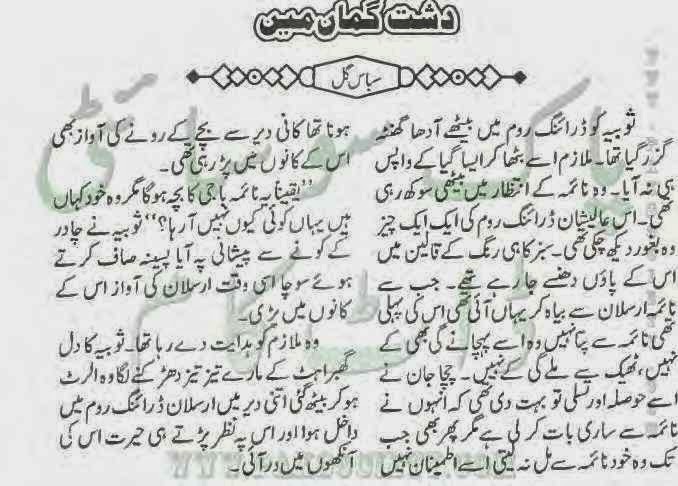 دشت گمان میں
سباس گل
ثوبیہ کو ڈرائنگ روم میں بیٹھے آدھا گھنٹہ
گزر گیا تھا۔ ملازم اسے بٹھا کر ایسا گیا کے واپس
ہی نہ آیا۔ وہ نائمہ کے انتظار میں بیٹھی سوکھ رہی
تھی۔ اس عالیشان ڈرائنگ روم کی ایک ایک چیز
وہ بغور دیکھ چکی تھی۔ سبز کاہی رنگ کے قالین میں
اس کے پاؤں دھنسے جا رہے تھے۔ جب سے
نائمہ ارسلان سے بیاہ کر یہاں آئی تھی اس کی پہلی
تھی نائمہ سے پتا نہیں وہ اسے پہچانے گی بھی کے
نہیں، ٹھیک سے ملے گی کے نہیں۔ چچا جان نے
اسے حوصلہ اور تسلی تو بہت دی تھی کہ انہوں نے
نائمہ سے ساری بات کر لی ہے مگر پھر بھی جب
تک وہ خود نائمہ سے مل نہ لیتی اسے اطمینان نہیں
ہونا تھا کافی دیر سے بچے کے رونے کی آواز بھی
اس کے کانوں میں پڑ رہی تھی۔
”یقیناً یہ نائمہ باجی کا بچہ ہوگا مگر وہ خود کہاں
ہیں یہاں کوئی کیوں نہیں آ رہا؟“ ثوبیہ نے چادر
کے کونے سے پیشانی پہ آیا پسینہ صاف کرتے
ہوئے سوچا اسی وقت ارسلان کی آواز اس کے
کانوں میں پڑی۔
وہ ملازم کو ہدایت دے رہا تھا۔ ثوبیہ کا دل
گھبراہٹ کے مارے تیز تیز دھڑکنے لگا وہ الرٹ
ہو کر بیٹھ گئی اتنی دیر میں ارسلان ڈرائنگ روم میں
داخل ہوا اور اس پہ نظر پڑتے ہی حیرت اس کی
آنکھوں میں در آئی۔